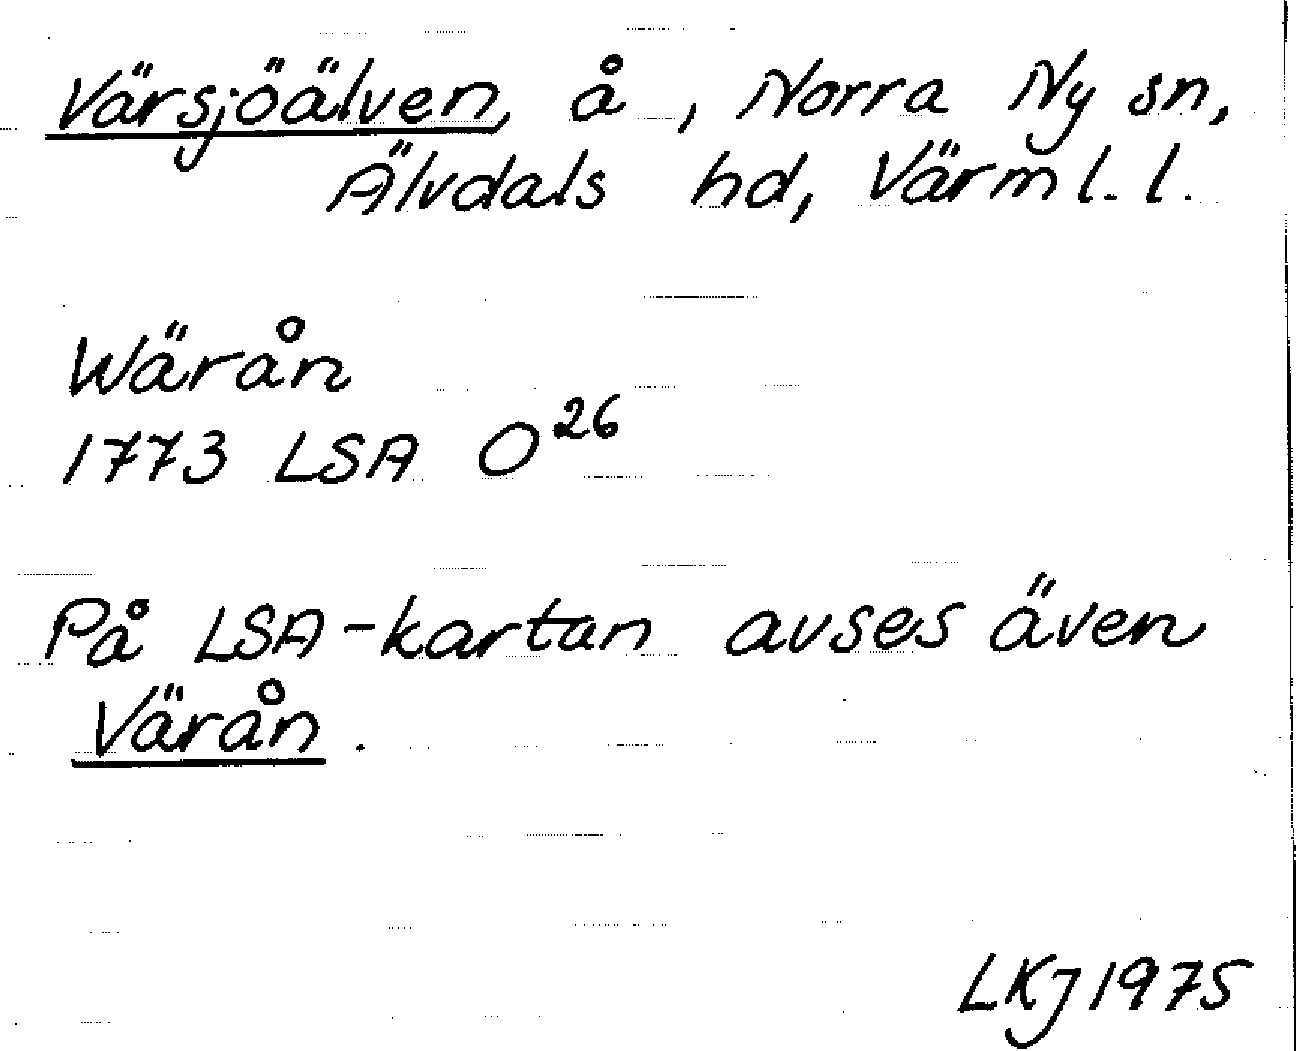 Värsjöälven, å, Norra Ny sn,
Älvdals hd, Värml. l.
Wärån
1773 LSA O²⁶
På LSA-kartan avses även
Värån.
LKJ 1975